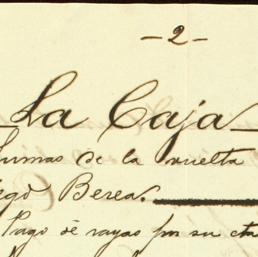 - 2 -
La Caja
Sumas de la vuelta
Diego Berea.
Pago de rayas por su cta